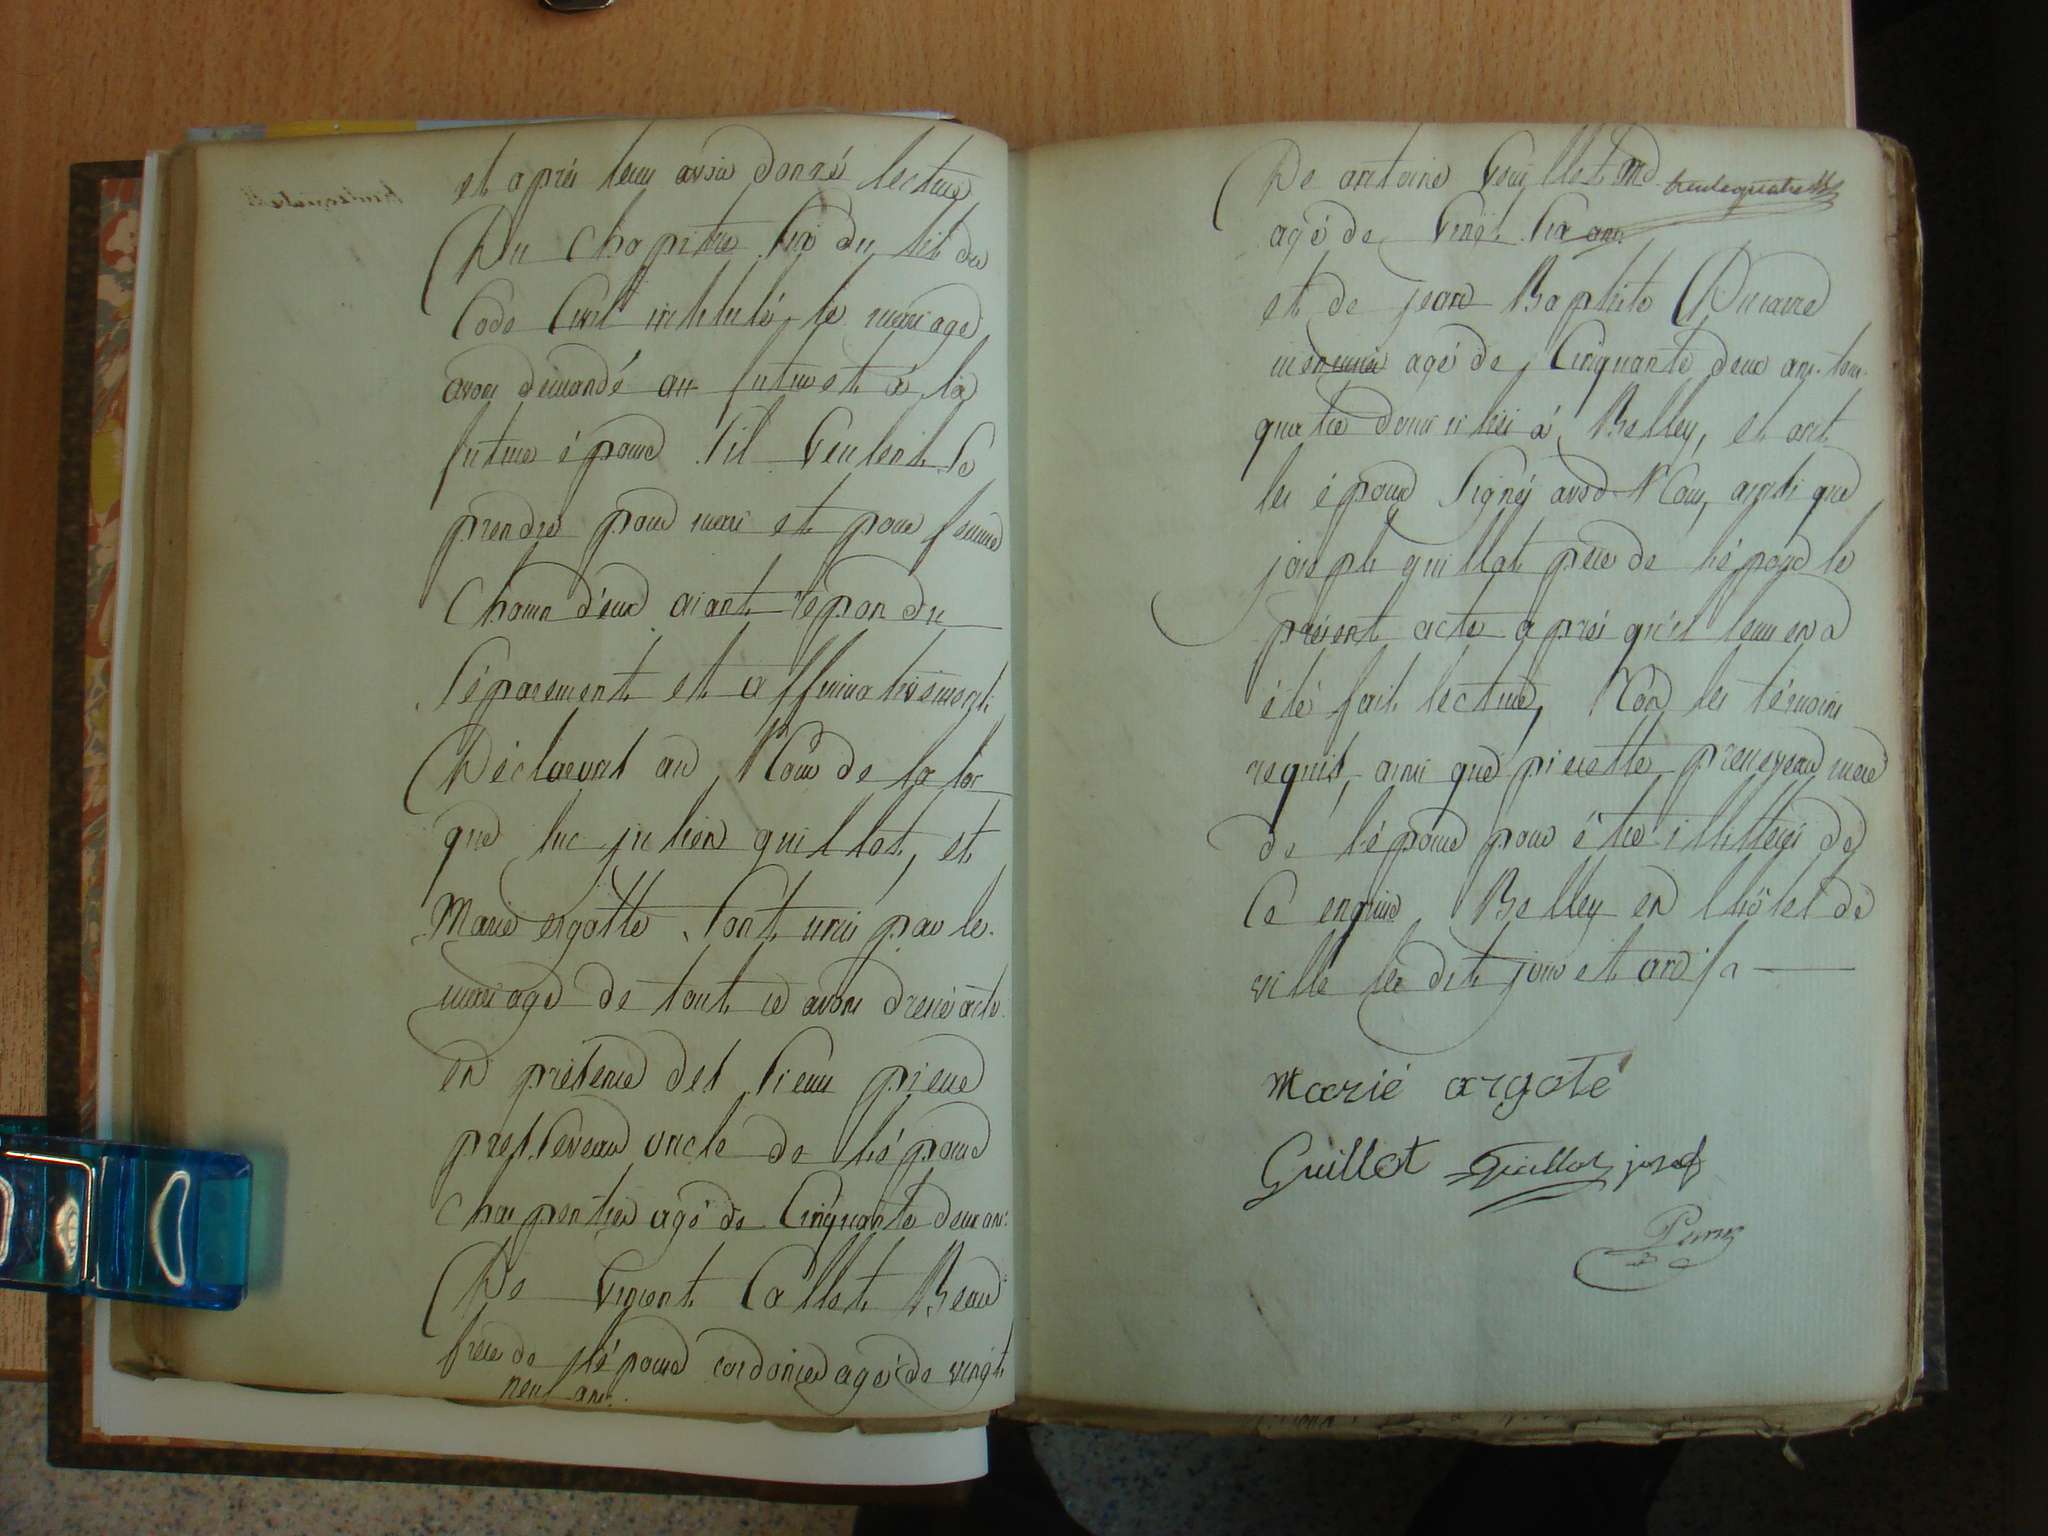 et après leur avoir donné lecture
Du Chapitre Six du tit du
Code Civil intitulé le mariage
avons demandé au futur et à la
future épouse S'il Veulent Se
prendre pour mari et pour femme
Chacun d'eux aiant répondu
Séparement et affirmativement
Déclarons au Nom de la loi
que luc julien guillot, et
Marie argotte Sont unis par le
mariage de tout ce avons dressé acte
en présence des Sieurs pierre
presseveau oncle de l'épouse
charpentier agé de Cinquante deux ans
De Vincent Collet Beau
frere de l'épouse cordonier agé de vingt
neuf ans.
De antoine Vouillot Md trentequatre
agé de Vingt Six ans
et de jean Baptiste Ducarre
menuisier agé de Cinquante deux ans tous
quatre domiciliés à Belley, et ont
les époux Signés avec Nous, ainsi que
joseph guillot père de l'époux le
présent acte après qu'il leur en a
été fait lecture, Non les témoins
requis, ainsi que pierrette presseveau mere
de l'épouse pour être illitterés de
Ce enquis Belley en l'hôtel de
ville les dit jour et an
Marié argoté
Guillot Guillot josef